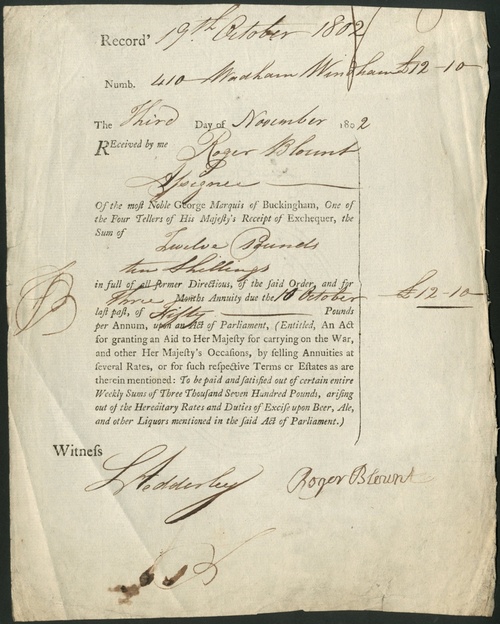 Record' 19th October 1802
Numb. 410 Wadham Windham £12-10
The Third Day of November 1802
REceived by me Roger Blount
Assignee
Of the moſt Noble George Marquis of Buckingham, One of
the Four Tellers of His Majeſty's Receipt of Exchequer, the
Sum of Twelve Pounds
ten Shillings
in full of all former Directions, of the ſaid Order, and for
three Months Annuity due the 10 October £12-10
laſt paſt, of Fifty Pounds
per Annum, upon an Act of Parliament, (Entitled, An Act
for granting an Aid to Her Majeſty for carrying on the War,
and other Her Majeſty's Occaſions, by ſelling Annuities at
ſeveral Rates, or for ſuch reſpective Terms or Eſtates as are
therein mentioned: To be paid and ſatisfied out of certain entire
Weekly Sums of Three Thouſand Seven Hundred Pounds, ariſing
out of the Hereditary Rates and Duties of Exciſe upon Beer, Ale,
and other Liquors mentioned in the ſaid Act of Parliament.)
Witneſs
Adderley Roger Blount